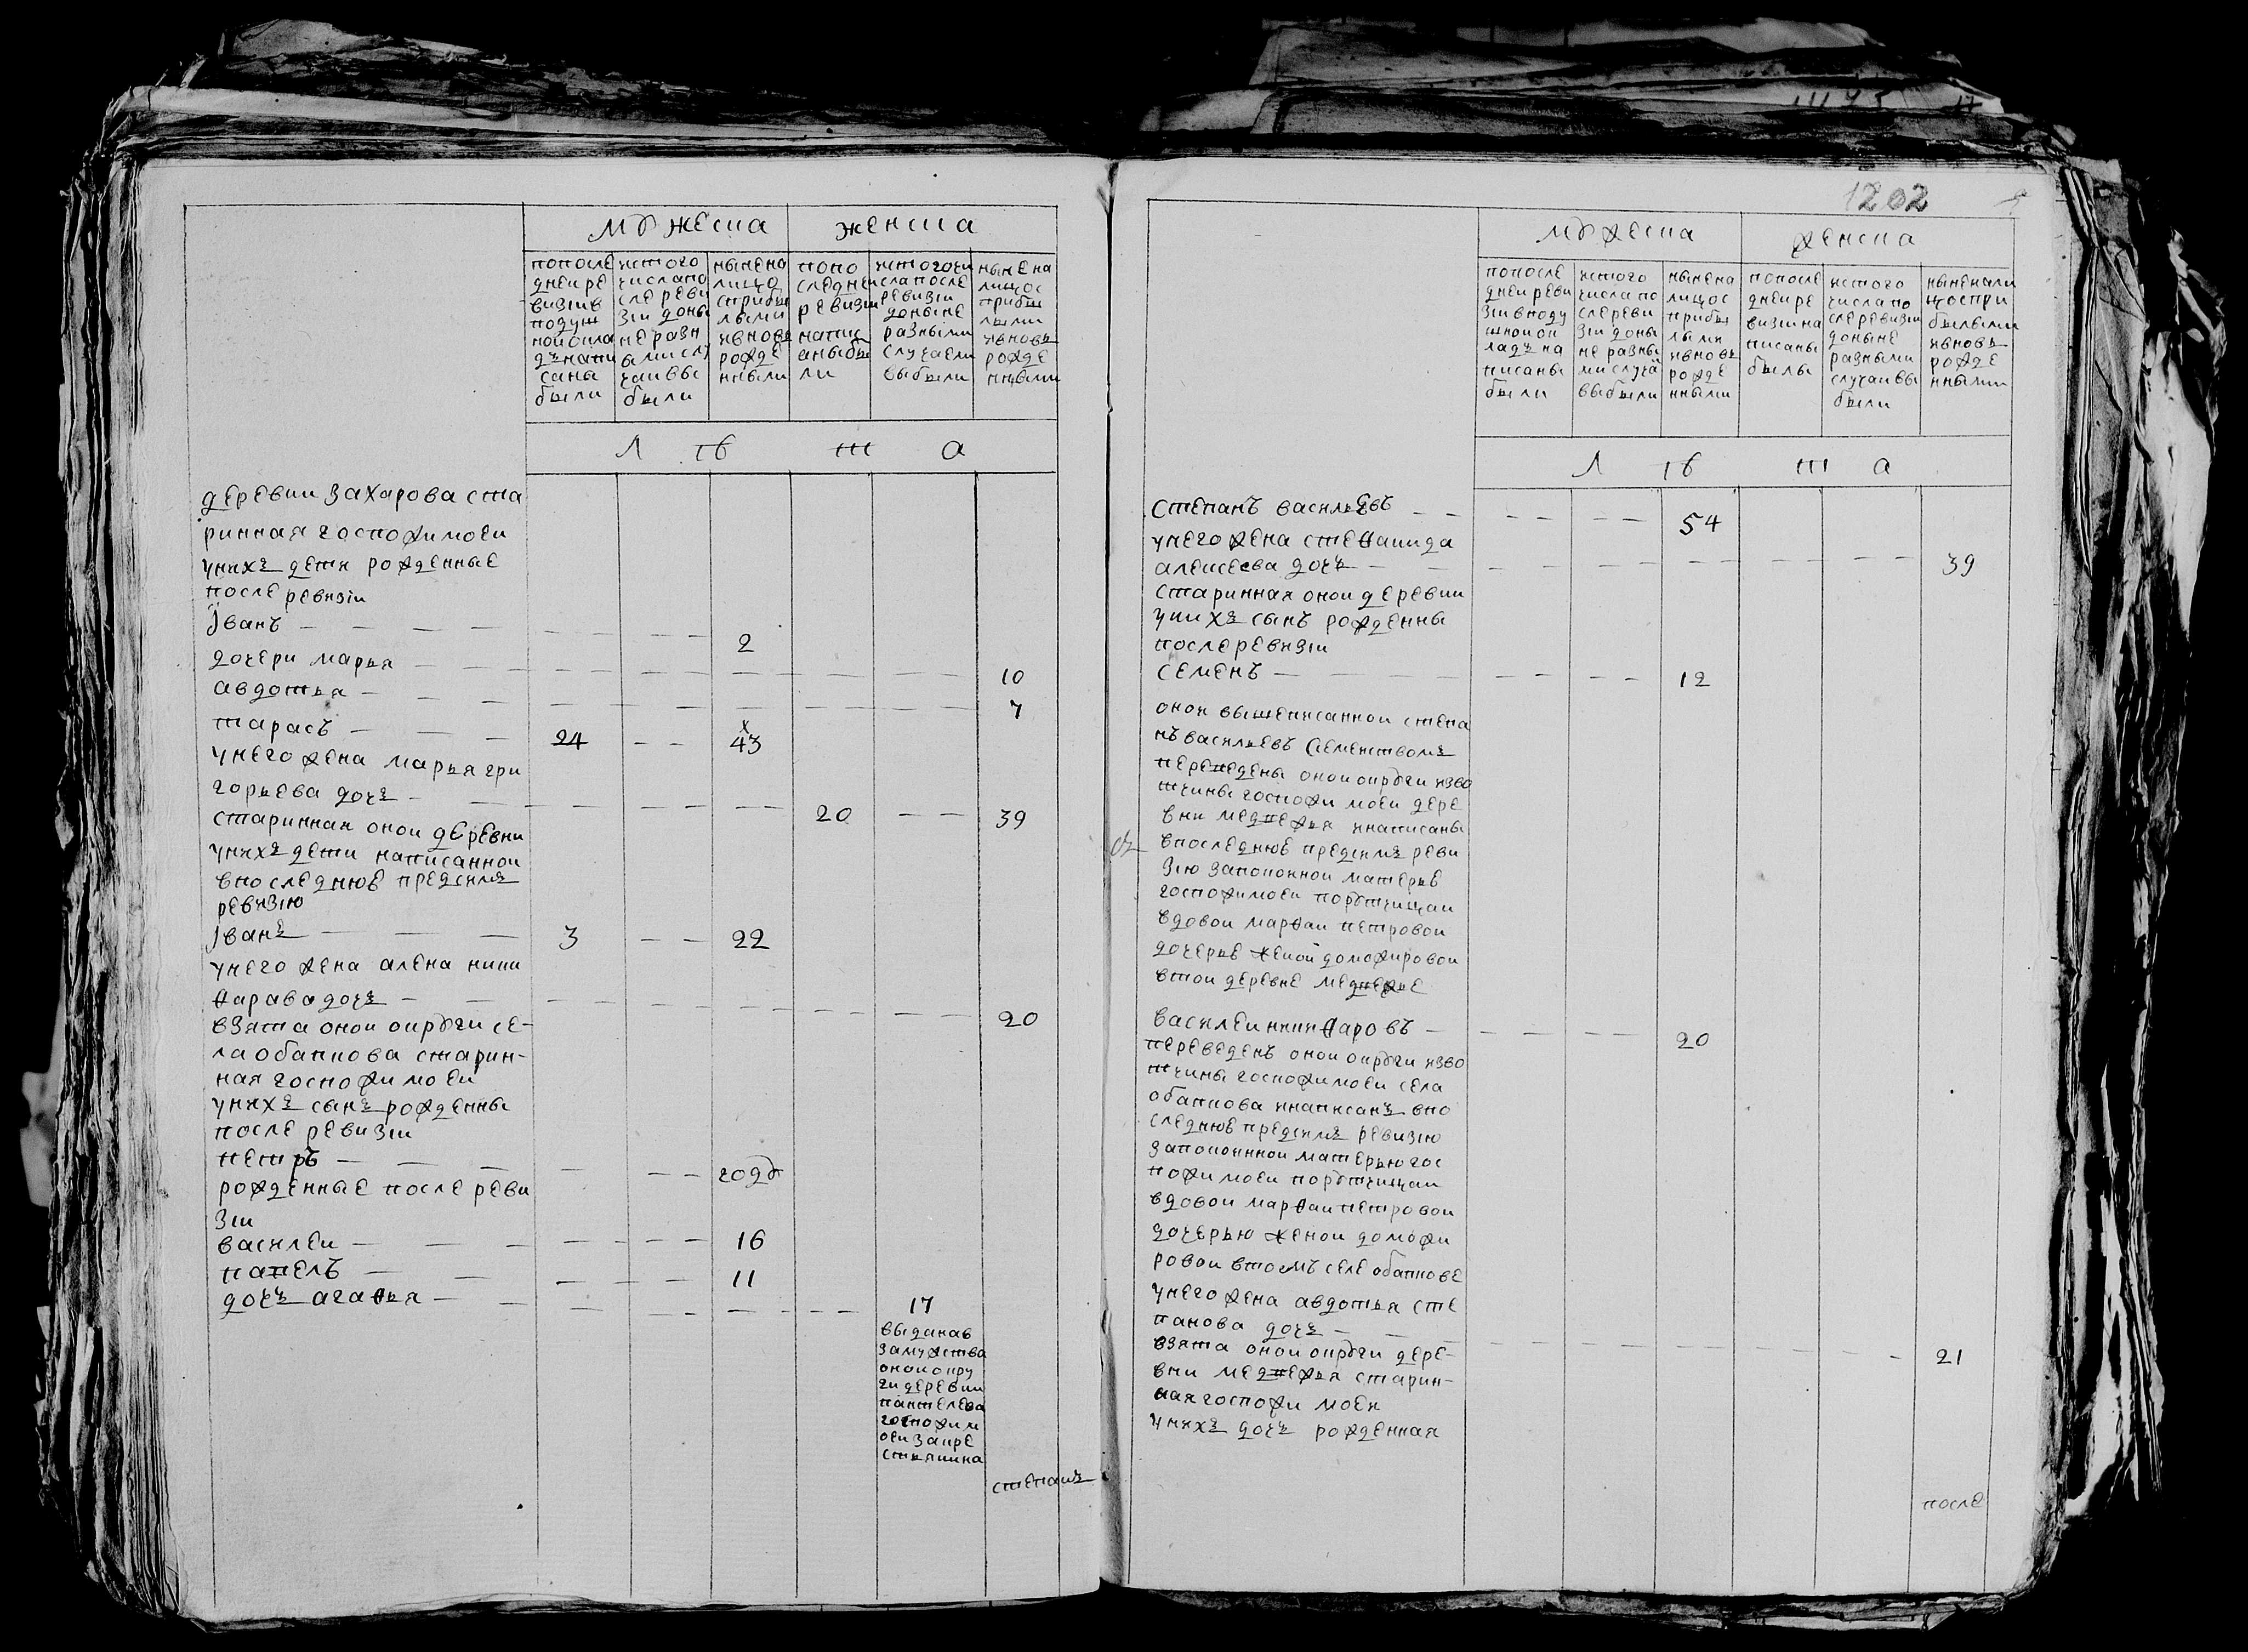 мужеска
женска
попосле
дней ре
визии в
подуш
ной окла
дъ напи
саны
были
ис того
числа по
сле реви
зии доны
не разн
ыми слу
чаи вы
были
ныне на
лицо
с прибы
лыми
и вновь
рожде
нными
по по
следней
ревизии
напис
аны бы
ли
ис того чи
сла после
ревизии
доныне
разными
случаеми
выбыли
ныне на
лицо с
прибы
лыми
и вновь
рожде
нными
Л ѣ т а
деревни захарова ста
ринная госпожи моеи
у нихъ дети рожденные
после ревизiи
Iванъ
2
дочери марья
10
авдотья
7
тарасъ
24
43
у него жена марья гри
горьева дочь
20
39
старинная онои деревни
у нихъ дети написаннои
в последнюе пред симъ
ревизiю
Iванъ
3
22
у него жена алена ники
ѳарава дочь
20
взята онои округи се-
ла обапкова старин-
ная госпожи моеи
у нихъ сынъ рожденны
после ревизiи
петръ
году
рожденные после реви
зiи
василеи
16
павелъ
11
дочь агаѳья
17
выдана в
замужства
онои окру
ги деревни
пантелева
госпожи м
оеи за кре
стьянина
степанъ
1202
мужеска
женска
по после
днеи реви
зiи в поду
шнои ок
ладъ на
писаны
были
ис того
числа по
сле реви
зiи доны
не разны
ми случа
выбыли
ныне на
лицо с
прибы
лыми
и вновь
рожде
нными
по после
днеи ре
визiи на
писаны
былы
ис того
числа по
сле ревизiи
доныне
разными
случаи вы
были
ныне нали
цо с при
былыми
и вновь
рожде
нными
Л ѣ т а
степанъ васильевъ
54
у него жена стеѳанида
алексеева дочь
39
старинная онои деревни
у нихъ сынъ рожденны
после ревизiи
семенъ
12
онои вышеписаннои степа
нъ васильевъ семенствомъ
переведены онои округи из во
тчины госпожи моеи дере
вни медвежья и написаны
в последнюе пред симъ реви
зiю за покоинои матерью
госпожи моеи порутчицаи
вдовои марѳаи петровои
дочерье женои доможировои
в тои деревне медвежье
василеи никиѳаровъ
20
переведенъ онои округи из во
тчины госпожи моеи села
обапкова и написанъ в по
следнюе пред симъ ревизiю
за покоиннои матерью гос
пожи моеи порутчицаи
вдовои марѳаи петровои
дочерью женои доможи
ровои в томъ селе обапкове
у него жена авдотья сте
панова дочь
21
взята онои округи дере-
вни медвежья старин-
ная госпожи моеи
у нихъ дочь рожденная
после